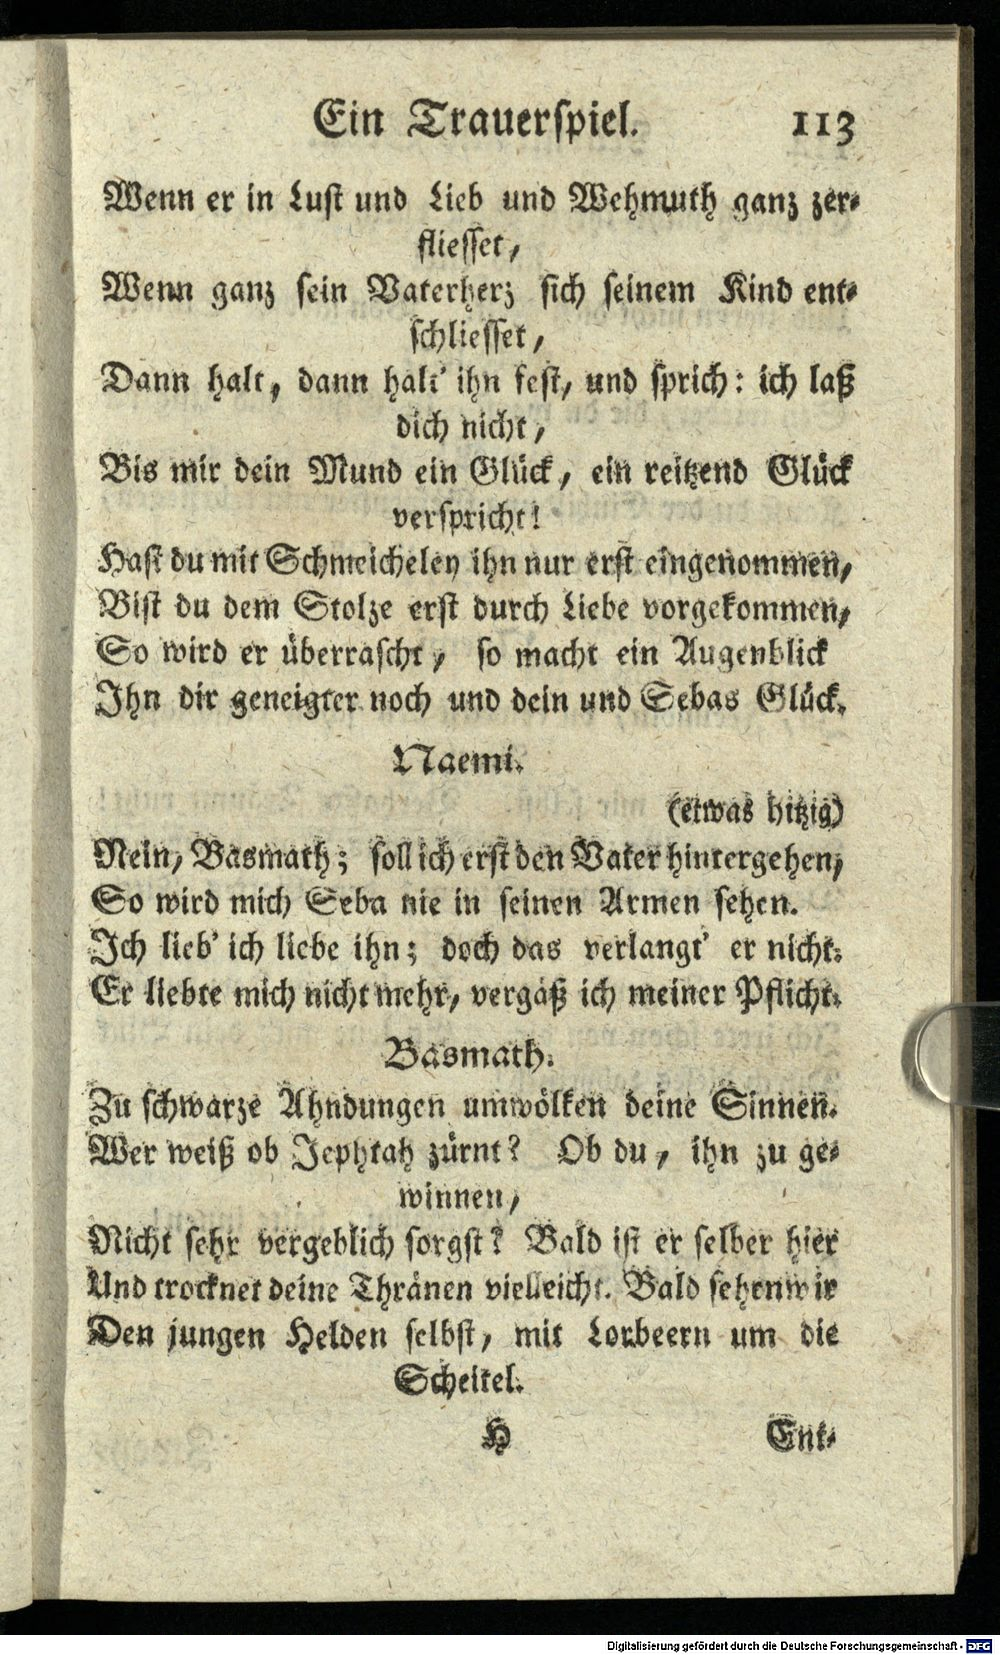 Ein Trauerſpiel. 113
Wenn er in Luſt und Lieb und Wehmuth ganz zer-
flieſſet,
Wenn ganz ſein Vaterherz ſich ſeinem Kind ent-
ſchlieſſet,
Dann halt, dann halt' ihn feſt, und ſprich: ich laß
dich nicht,
Bis mir dein Mund ein Glück, ein reitzend Glück
verſpricht!
Haſt du mit Schmeicheley ihn nur erſt eingenommen,
Biſt du dem Stolze erſt durch Liebe vorgekommen,
So wird er überraſcht, ſo macht ein Augenblick
Ihn dir geneigter noch und dein und Sebas Glück.
Naemi.
(etwas hitzig)
Nein, Basmath; ſoll ich erſt den Vater hintergehen,
So wird mich Seba nie in ſeinen Armen ſehen.
Ich lieb' ich liebe ihn; doch das verlangt' er nicht.
Er liebte mich nicht mehr, vergäß ich meiner Pflicht.
Basmath.
Zu ſchwarze Ahndungen umwölken deine Sinnen.
Wer weiß ob Jephtah zürnt? Ob du, ihn zu ge-
winnen,
Nicht ſehr vergeblich ſorgſt? Bald iſt er ſelber hier
Und trocknet deine Thränen vielleicht. Bald ſehen wir
Den jungen Helden ſelbſt, mit Lorbeern um die
Scheitel.
H Ent-
Digitalisierung gefördert durch die Deutsche Forschungsgemeinschaft - DFG